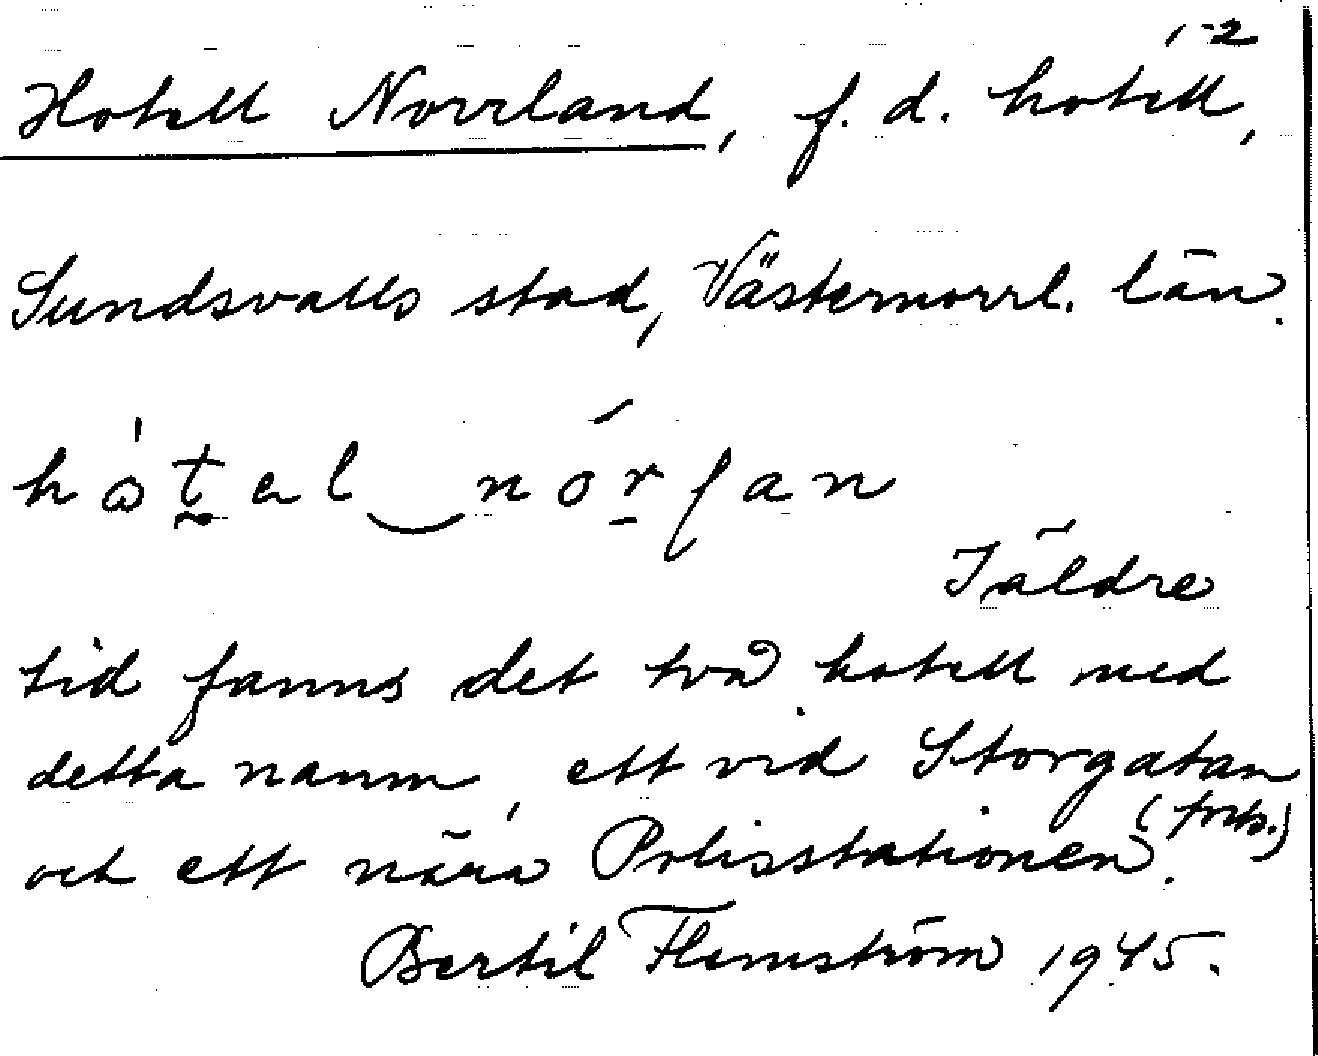 1-2
Hotell Norrland, f. d. hotell,
Sundsvalls stad, Västernorrl. län.
hotel norlan
I äldre
tid fanns det två hotell med
detta namn, ett vid Storgatan
och ett nära Polisstationen. (forts.)
Bertil Flemström 1945.